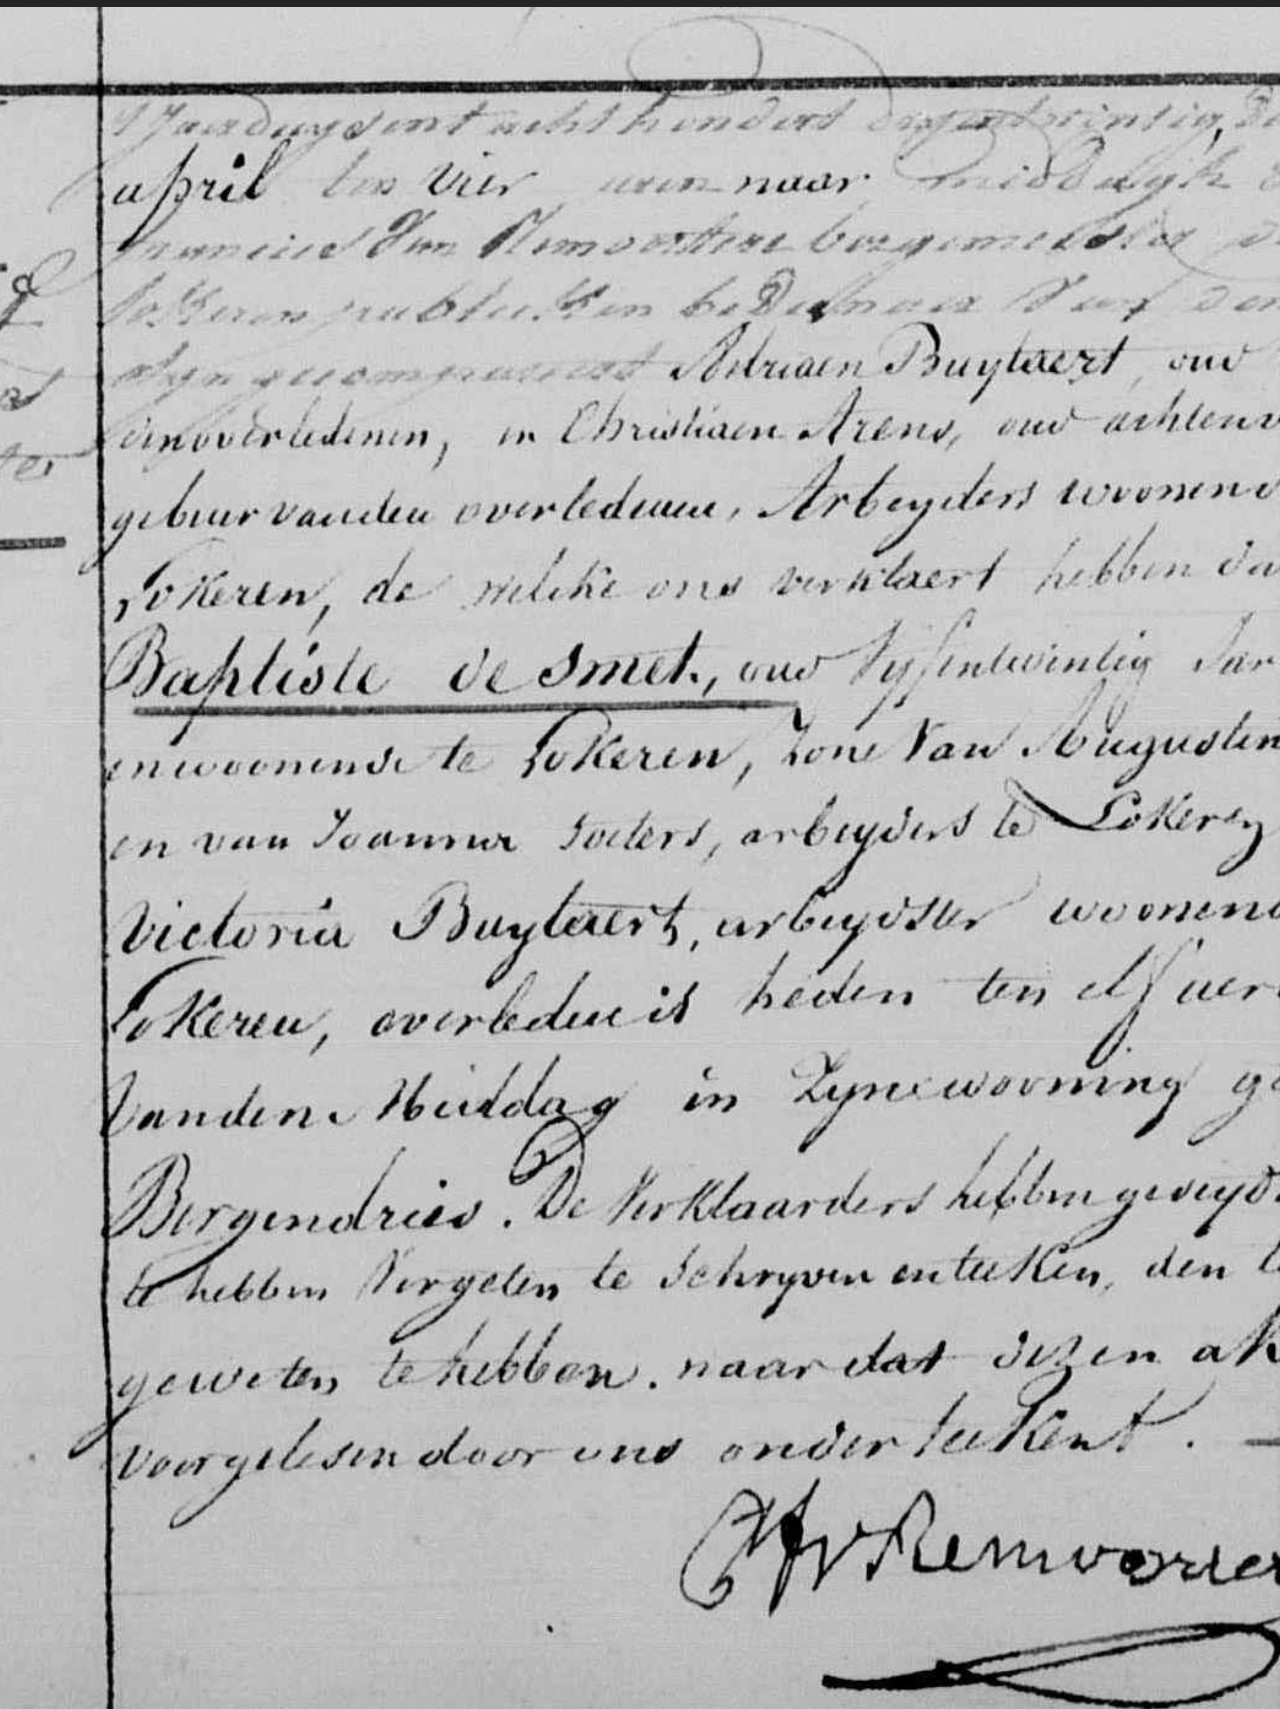 T Jaer duysent acht hondert dryentwintig, De
april ten vier uren naar middagh
Francies Van Remoortere borgemeester
Lokeren publieken bedienaer Van den
zyn gecompareert Adriaen Buytaert, oud
overledenen, en Christiaen Arens, oud achtenv
gebuer vanden overledenen, Arbeyders woonend
Lokeren, de welcke ons verklaert hebben da
Baptiste de Smet, oud Vyfentwintig Jaer
enwoonende te Lokeren, Zone Van Augustin
en van Joanna , arbeyders te Lokeren
Victoria Buytaert, arbeydster woonend
Lokeren, overleden is heden ten elf uer
Vanden Middag in Zyne wooning ge
Bergendries. De Verklaarders hebben geseyd
te hebben Vergeten te Schryven en teeken, den
geweten te hebben. naar dat dezen ak
voorgelesen door ons onderteekent.
VRemoorter